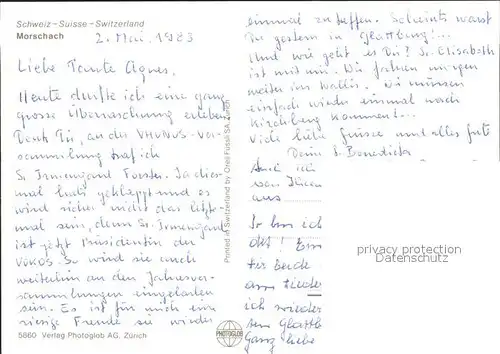 Schweiz – Suisse – Switzerland
Morschach
2. Mai, 1983
Liebe Tante Agnes,
Heute durfte ich eine ganz
grosse Überraschung erleben
Denk Dir, an der VHONOS-Ver-
sammlung traf ich
Sr. Irmengard Forster. Ja dies-
mal hats geklappt und es
wird sicher nicht das letzte-
mal sein, denn Sr. Irmengard
ist jetzt Präsidentin der
VOKOS. So wird sie auch
weiterhin an den Jahresver-
sammlungen eingeladen
sein. Es ist für mich eine
riesige Freude sie wieder
5860 Verlag Photoglob AG, Zürich
Printed in Switzerland by Orell Füssli SA, Zürich
PHOTOGLOB
einmal zu treffen. Scheints warst
Du gestern in Glattburg!...
Und wie geht es Dir? Sr. Elisabeth
ist mit mir. Wir fahren morgen
weiter ins Wallis. Wir müssen
einfach wieder einmal nach
Kirchberg kommen!...
Viele liebe Grüsse und alles gute
Deine Sr. Benedicta
Auch ich
von Ihnen
aus
So bin ich
okt! Em
für beide
am Ende
ich wieder
sen Glattb
Ganz liebe
privacy protection
Datenschutz